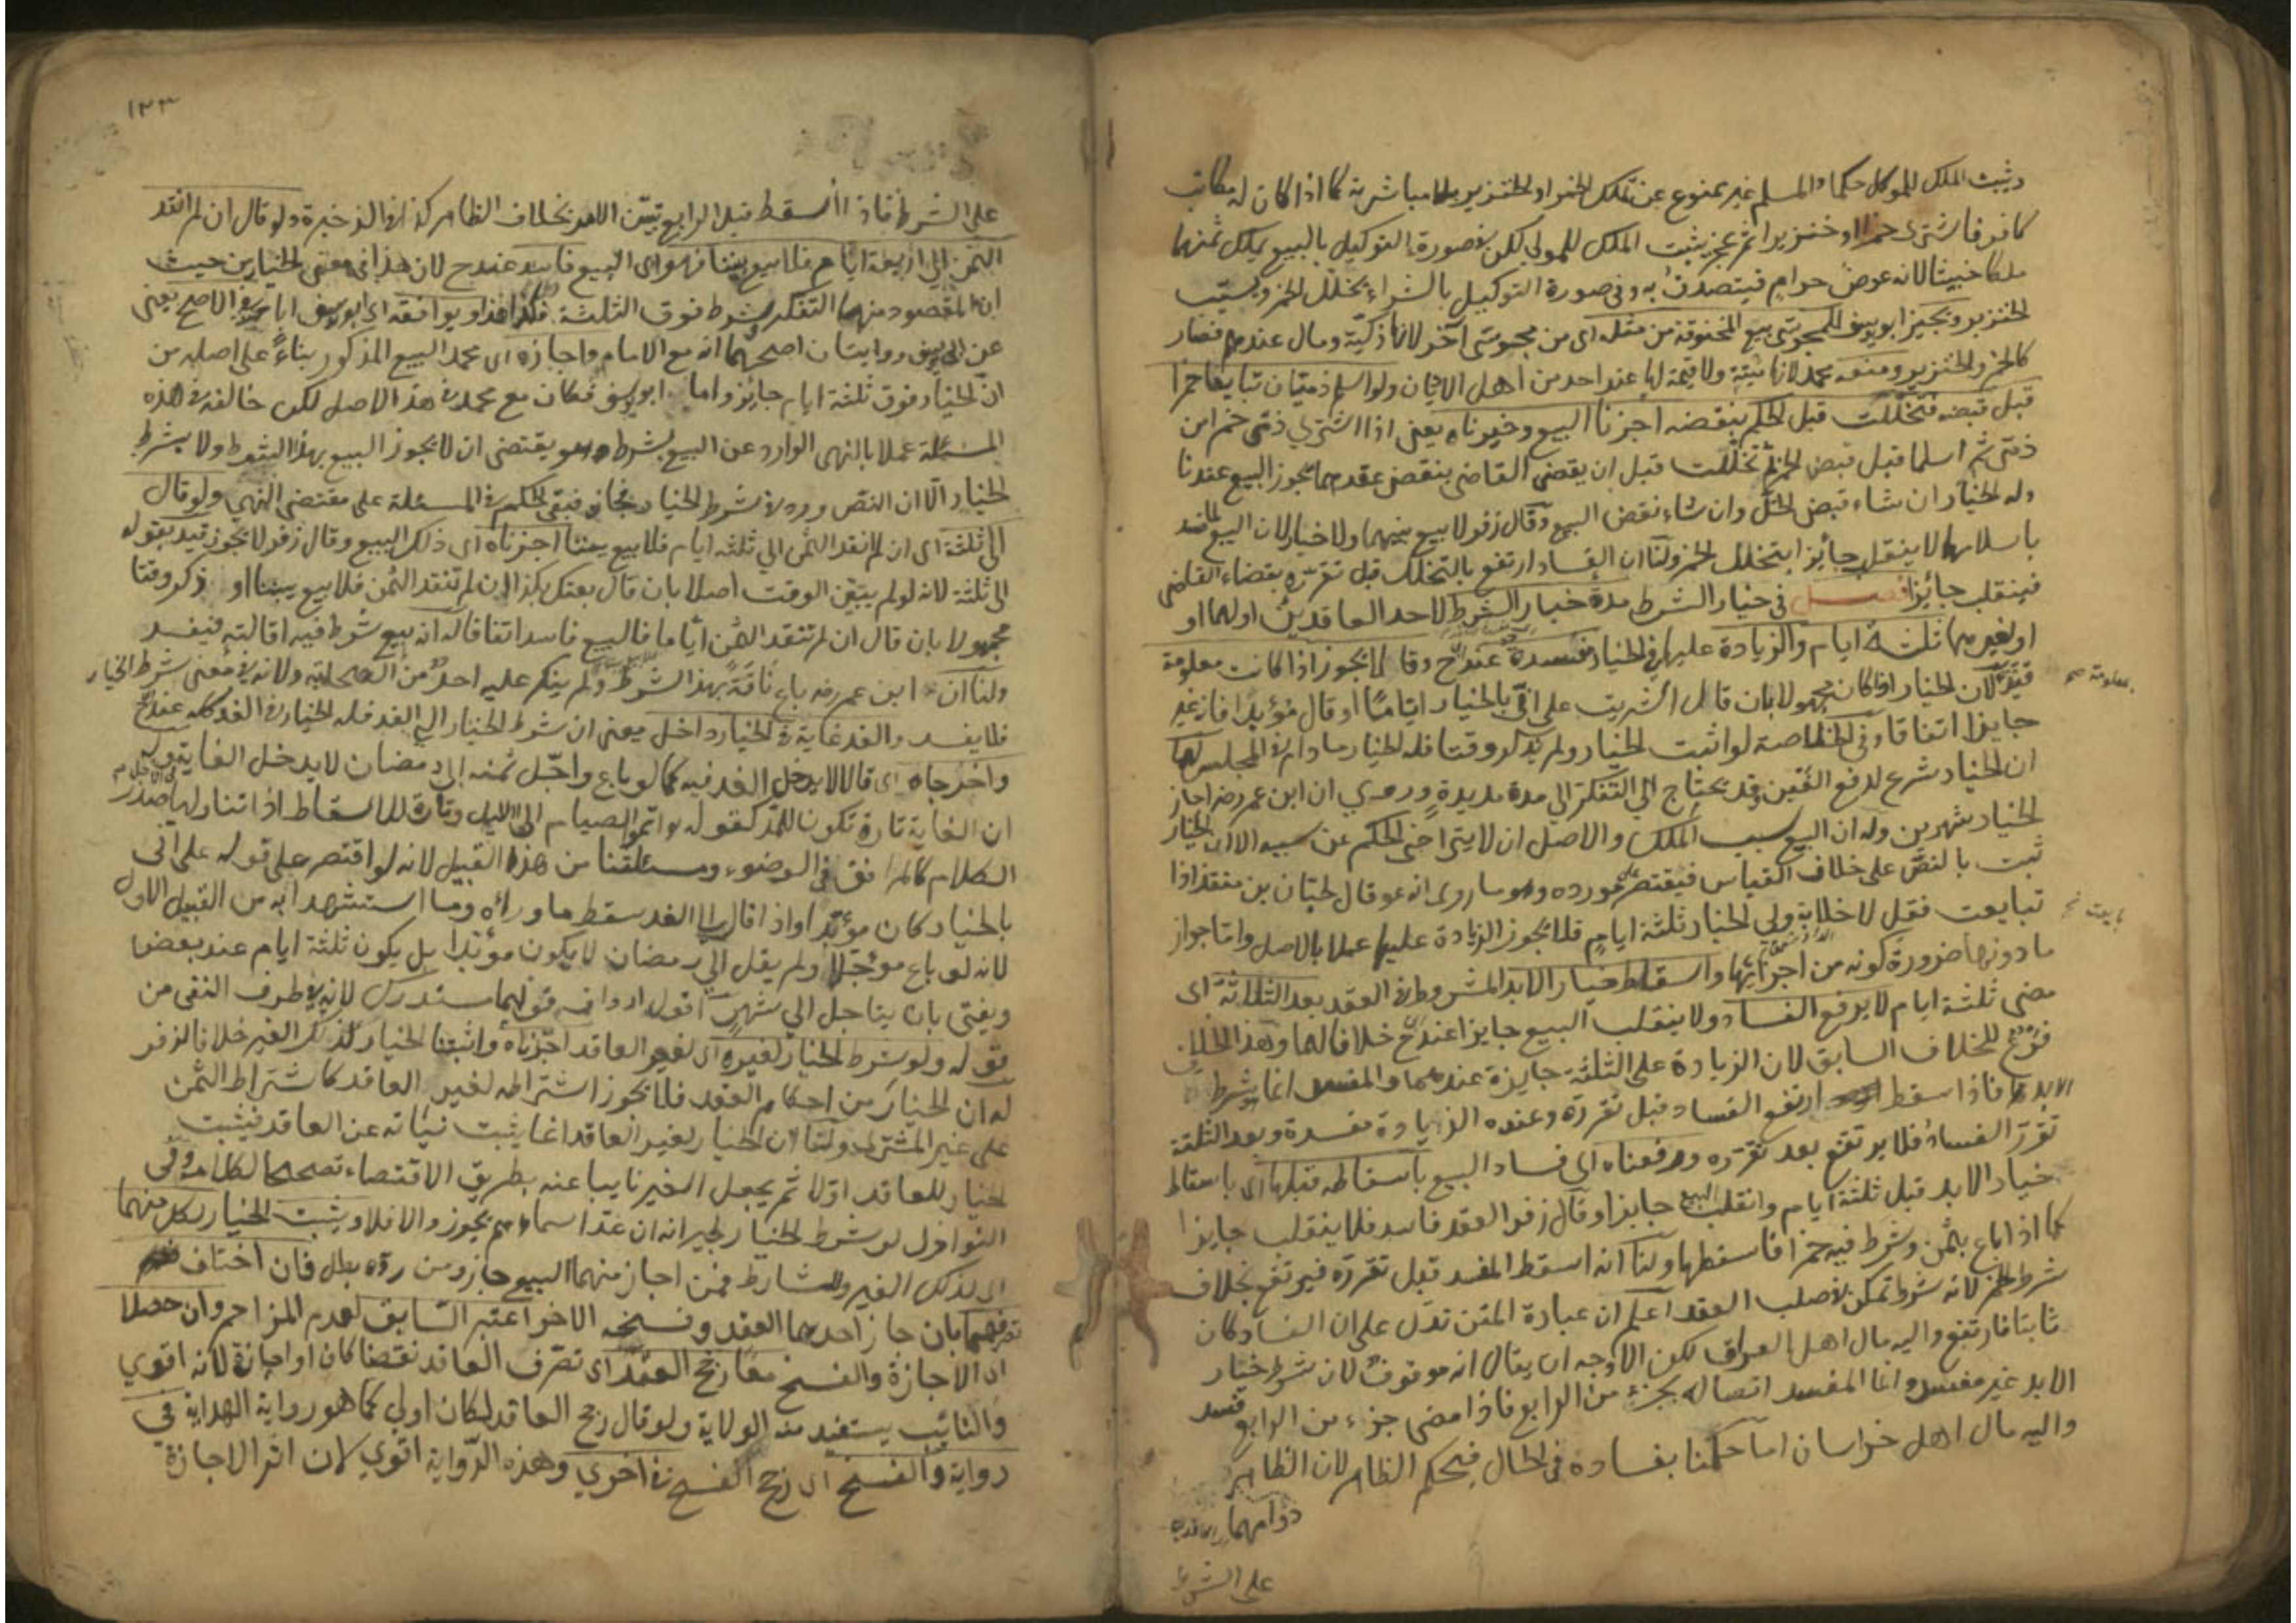 ويثبت الملك للموكل حكما والمسلم غير ممنوع عن تملك الخمر او الخنزير بلا مباشرته كما اذا كان له مكاتب
كافر فاشترى خمرا او خنزيرا ثم عجز يثبت الملك للمولى لكن في صورة التوكيل بالبيع يملك ثمنها
ملكا خبيثا لانه عوض حرام فيتصدق به وفي صورة التوكيل بالشراء يخلل الخمر ويسيب
الخنزير ويجيز ابو يوسف للمجوسي بيع المخنوقة من مثله اى من مجوسي آخر لانها ذكية ومال عندهم فصار
كالخمر والخنزير ومنعه محمد لانها ميتة ولا قيمة لها عند احد من اهل الاديان ولو اسلم ذميان تبايعا خمرا
قبل قبضه فتخللت قبل الحكم بنقضه اجزنا البيع وخيرناه يعنى اذا اشترى ذمى خمرا من
ذمى ثم اسلما قبل قبض الخمر ثم تخللت قبل ان يقضى القاضى بنقض عقدهما يجوز البيع عندنا
وله الخيار ان شاء قبض الخل وان شاء نقض البيع وقال زفر لا بيع بينهما ولا خيار لان البيع لما فسد
باسلامهما لا ينقلب جائزا بتخلل الخمر ولنا ان الفساد ارتفع بالتخلل قبل تقرره بقضاء القاضى
فينقلب جائزا فصل في خيار الشرط مدة خيار الشرط لاحد العاقدين او لهما او
او لغيرهما ثلثة ايام والزيادة عليها في الخيار مفسدة عند ح وقالا يجوز اذا كانت معلومة
قيد لان الخيار اذا كان مجهولا بان قال اشتريت على انى بالخيار اياما او قال مؤبدا فانه غير
جايز اتفاقا وفى الخلاصة لو اثبت الخيار ولم يذكر وقتا فله الخيار ما دام في المجلس لهما
ان الخيار شرع لدفع الغبن وقد يحتاج الى التفكر الى مدة مديدة وروي ان ابن عمر رضه اجاز
الخيار شهرين وله ان البيع سبب الملك والاصل ان لا يتراخى الحكم عن سببه الا ان الخيار
ثبت بالنص على خلاف القياس فيقتصر على مورده وهو ما روى انه عم قال لحبان بن منقذ اذا
تبايعت فقل لا خلابة ولي الخيار ثلثة ايام فلا يجوز الزيادة عليها عملا بالاصل واما جواز
ما دونها ضرورة كونه من اجزائها واسقاط خيار الابد المشروط في العقد بعد الثلاثة اى
مضى ثلثة ايام لا يرفع الفساد ولا ينقلب البيع جايزا عند ح خلافا لهما وهذا الخلاف
فرع للخلاف السابق لان الزيادة على الثلثة جايزة عندهما والمفسد انما شرط
الابد فاذا سقط ارتفع الفساد قبل تقرره وعنده الزيادة مفسدة وبعد الثلثة
تقرر الفساد فلا يرتفع بعد تقرره ورفعناه اى فساد البيع باسقاطه قبلها اى باسقاط
خيار الابد قبل ثلثة ايام وانقلب البيع جايزا وقال زفر العقد فاسد فلا ينقلب جايزا
كما اذا باع بثمن وشرط فيه خمرا فاسقطها ولنا انه اسقط المفسد قبل تقرره فيرتفع بخلاف
شرط الخمر لانه شرط تمكن في صلب العقد اعلم ان عبارة المتن تدل على ان الفساد كان
ثابتا فارتفع واليه مال اهل العراق لكن الاوجه ان يقال انه موقوف لان شرط خيار
الابد غير مفسد وانما المفسد اتصاله بجزء من الرابع فاذا مضى جزء من الرابع فسد
واليه مال اهل خراسان اما حكمنا بفساده فى الحال فبحكم الظاهر لان الظاهر
دوامهما
على الشرط
معلومة صح
بايعت نخ
١٢٣
على الشرط فاذا اسقط قبل الرابع تبين الامر بخلاف الظاهر كذا في الذخيرة ولو قال ان لم انقد
الثمن الى اربعة ايام فلا بيع بيننا فهو اى البيع فاسد عند ح لان هذا في معنى الخيار من حيث
ان المقصود منهما التفكر بشرط فوق الثلثة فكذا هذا ويوافقه اى ابو يوسف ابا حنيفة في الاصح يعنى
عن ابي يوسف روايتان اصحهما انه مع الامام واجازه اى محمد البيع المذكور بناءً على اصله من
ان الخيار فوق ثلثة ايام جايز واما ابو يوسف فكان مع محمد في هذا الاصل لكن خالفه في هذه
المسئلة عملا بالنهى الوارد عن البيع بشرط وهو يقتضى ان لا يجوز البيع بهذا الشرط ولا بشرط
الخيار الا ان النص ورد في شرط الخيار فجاز فبقى الحكم في المسئلة على مقتضى النهي ولو قال
الى ثلثة اى ان لم انقد الثمن الي ثلثة ايام فلا بيع بيننا اجزناه اى ذلك البيع وقال زفر لا يجوز قيد بقوله
الى ثلثة لانه لو لم يبين الوقت اصلا بان قال بعتك بكذا ان لم تنقد الثمن فلا بيع بيننا او ذكر وقتا
مجهولا بان قال ان لم تنقد الثمن اياما فالبيع فاسد اتفاقا له انه بيع شرط فيه اقالته فيفسد
ولنا ان ابن عمر رضه باع ناقة بهذا الشرط ولم ينكر عليه احد من الصحابة ولانه في معنى شرط الخيار
فلا يفسد والغد غاية في الخيار داخل يعنى ان شرط الخيار الى الغد فله الخيار في الغد كله عند ح
واخرجاه اى قالا لا يدخل الغد فيه كما لو باع واجل ثمنه الى رمضان لا يدخل الغاية وله
ان الغاية تارة تكون للمد كقوله واتموا الصيام الى الليل وتارة للاسقاط اذا تناولها صدر
الكلام كالمرافق في الوضوء ومسئلتنا من هذا القبيل لانه لو اقتصر على قوله على انى
بالخيار كان مؤبدا واذا قال الى الغد سقط ما وراءه وما استشهدا به من القبيل الاول
لانه لو باع مؤجلا ولم يقل الى رمضان لا يكون مؤبدا بل يكون ثلثة ايام عند بعض
ويفتى بان يتاجل الى شهر اقول ارداف قولهما مستدرك لانه في طرف النفى من
قوله ولو شرط الخيار لغيره اى لغير العاقد اجزناه واثبتنا الخيار لذلك الغير خلافا لزفر
له ان الخيار من احكام العقد فلا يجوز اشتراطه لغير العاقد كاشتراط الثمن
على غير المشترى ولنا ان الخيار لغير العاقد انما يثبت نيابة عن العاقد فيثبت
الخيار للعاقد اولا ثم يجعل الغير نايبا عنه بطريق الاقتضاء تصحيحا لكلامه وفى
النوازل لو شرط الخيار لجيرانه ان عد اسماءهم يجوز والا فلا ويثبت الخيار لكل منهما
اى لذلك الغير وللشارط فمن اجاز منهما البيع جاز ومن رده بطل فان اختلف
تصرفهما بان جاز احدهما العقد وفسخه الاخر اعتبر السابق لعدم المزاحم وان حصلا
اى الاجازة والفسخ معا رجح العقد اى تصرف العاقد نقضا كان او اجازة لانه اقوي
والنائب يستفيد منه الولاية ولو قال رجح العاقد لكان اولى كما هو رواية الهداية في
رواية والفسخ اى رجح الفسخ في اخري وهذه الرواية اقوي لان اثر الاجازة